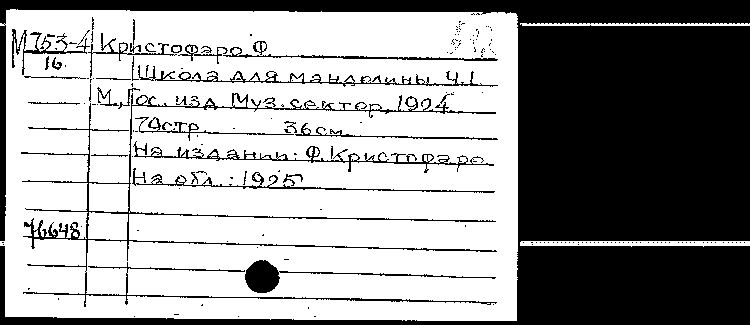 М 753-4 Кристофаро, Ф.
16
Школа для мандолины. Ч.1
М., Гос. изд. Муз. сектор, 1924.
70стр. 36см.
На издании: Ф. Кристофаро
На обл.: 1925
76648